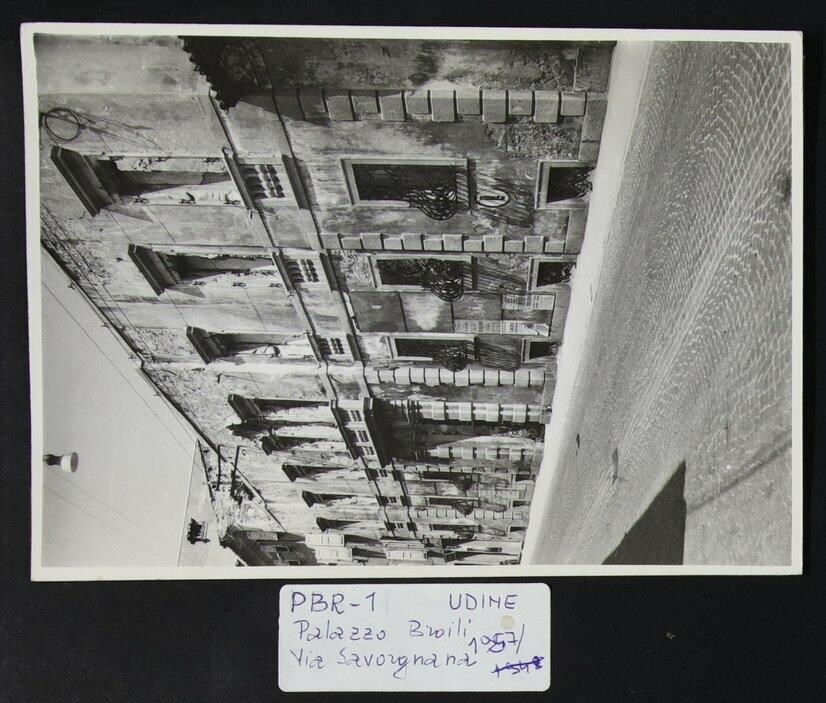 PBR-1 UDINE
Palazzo Broili
Via Savorgnana 1957/